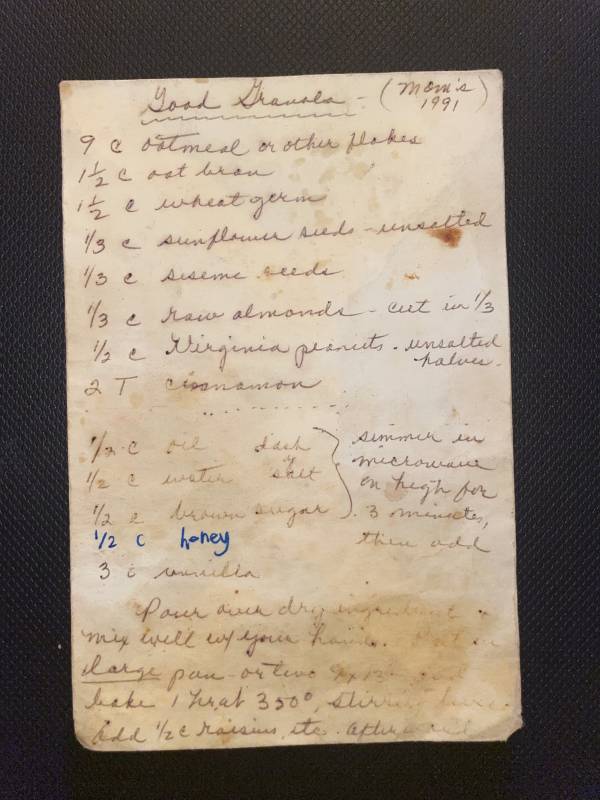 Good Granola - (Mom's 1991)
9 c oatmeal or other flakes
1 1/2 c oat bran
1 1/2 c wheat germ
1/3 c sunflower seeds - unsalted
1/3 c siseme seeds
1/3 c raw almonds - cut in 1/3
1/2 c Virginia peanuts - unsalted halves.
2 T cinnamon
1/2 c oil dash of salt
1/2 c water
1/2 c brown sugar
simmer in
microwave
on high for
3 minutes,
then add
1/2 c honey
3 vanilla
Pour over dry ingredient
mix well w/ your hands.
large pan - or two 9x13
bake 1 hr at 350°, stirring
Add 1/2 c raisins, etc.